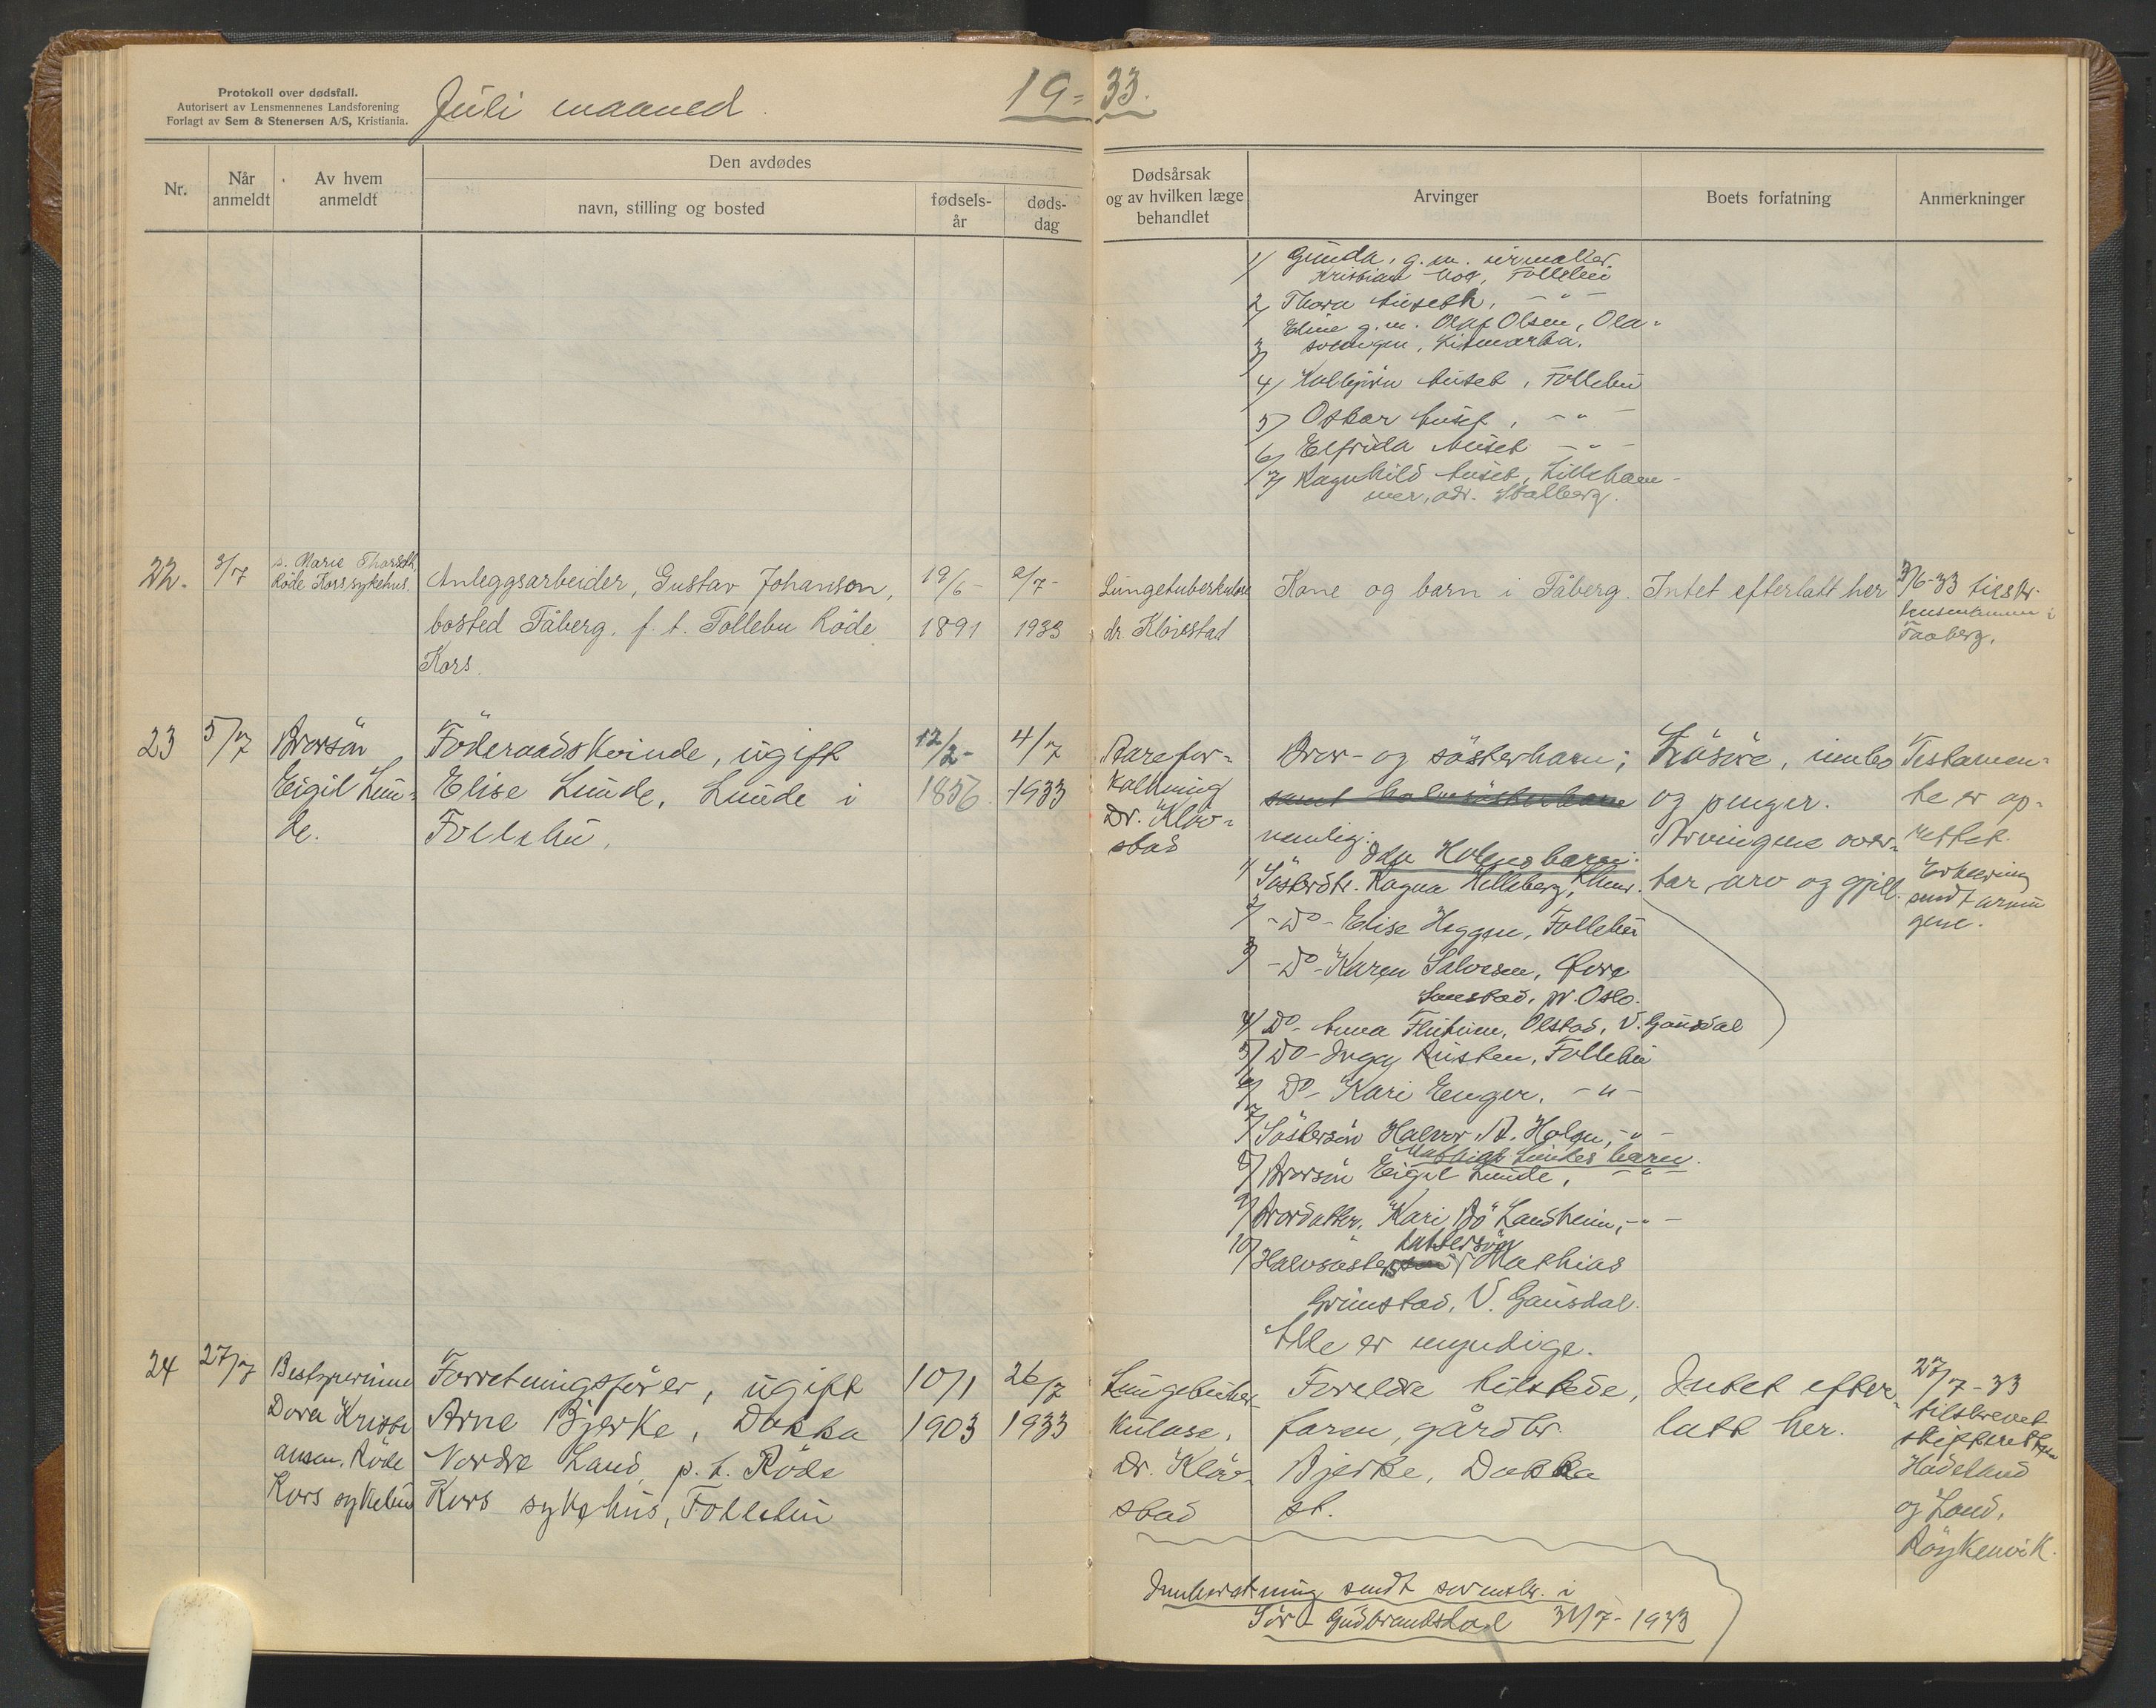 Protokoll over dødsfall.
Autorisert av Lensmennenes Landsforening
Forlagt av Sem & Stenersen A/S, Kristiania.
Juli maaned
19=33.
Nr.
Når anmeldt
Av hvem anmeldt
Den avdødes
navn, stilling og bosted
fødsels-
år
døds-
dag
Dødsårsak
og av hvilken læge
behandlet
Arvinger
Boets forfatning
Anmerkninger
1/ Gunda, g.m. urmaker
Kristian Moe, Follebu
2/ Thora Huseth, - " -
3/ Eline g.m. Olaf Olsen, Ola-
svengen, Lismarka.
4/ Kolbjörn Huset, Follebu
5/ Oskar Huset, - " -
6/ Elfrida Huset - " -
7/ Ragnhild Huset, Lilleham-
mer, adr. Stalberg.
22.
3/7
s. Marie Thorseth
Röde Kors sykehus.
Anleggsarbeider, Gustav Johanson,
bosted Fåberg, f. t. Follebu Röde
Kors.
19/6-
1891
2/7-
1933
Lungetuberkulose
dr. Klövstad
Kone og barn i Fåberg.
Intet efterlatt her
3/6-33 tilskr.
lensmannen i
Faaberg.
23
5/7
Brorsön
Eigil Lun-
de.
Föderaadskvinde, ugift
Elise Lunde, Lunde i
Follebu.
12/2-
1856
4/7
1933
Aarefor-
kalkning
Dr. Klöv-
stad
Bror- og søsterbarn;
samt halvsøsterbarn
nemlig:
Holens barn:
1/ Søsterdtr. Ragna Helleberg,
2/ - Do - Elise Heggen, Follebu
3/ - Do - Karen Salvesen, Övre
pr. Oslo.
4/ Do - Anna Flutum, Olstad, V. Gausdal
5/ Do - Inga Rusten, Follebu
6/ Do - Kari Enger, - " -
7/ Søstersön Halvor A. Holen, - " -
Mathias Lundes barn.
8/ Brorsön Eigil Lunde, - " -
9/ Brordatter, Kari Bö Landheim, - " -
10/ Halvsøsters dattersön Mathias
Grimstad, V. Gausdal.
Alle er myndige.
Lösöre, innbo
og penger.
Arvingene over-
tar arv og gjell.
Testamen-
te er op-
rettet.
Erklæring
sendt arvin
gene.
24
27/7
Bestyrerinne
Dora Kristi
ansen, Röde
Kors sykehus
Forretningsförer, ugift
Arne Bjerke, Dokka
Nordre Land, p. t. Röde
Kors sykehus, Follebu
10/1
1903
26/7
1933
Lungetuber-
kulose,
Dr. Klöv-
stad
Foreldre tilstede,
faren, gårdbr.
Bjerke, Dokka
st.
Intet efter-
latt her.
27/7-33
tilskrevet
skifteretten
Hadeland
og Land,
Röykenvik.
Innberetning sendt sorenskr. i
Sör Gudbrandsdal 31/7-1933